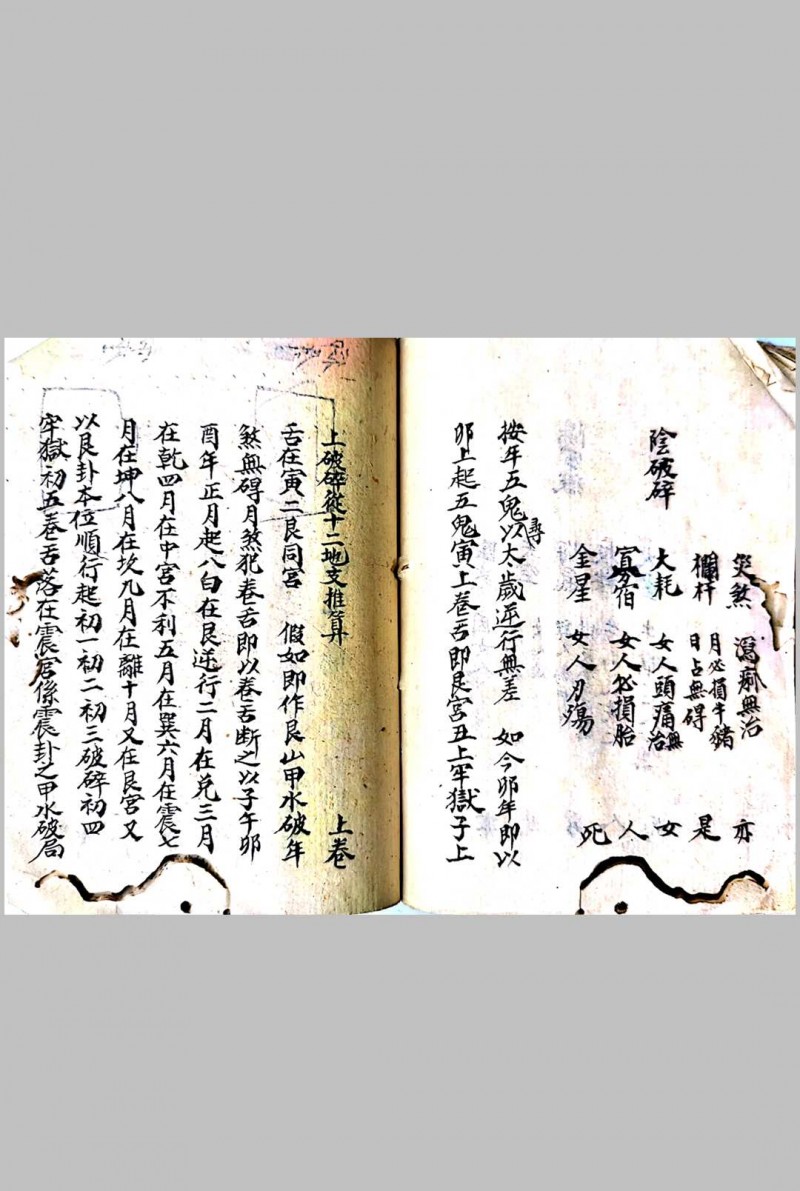 災煞 瀉痢無治 亦
欄杆 月必損牛豬 日占無碍 是
大耗 女人頭痛無治 女
陰破碎
寡宿 女人必損胎 人
金星 女人刃殤 死
按年五鬼以尋太歲逆行無差 如今卯年即以
卯上起五鬼寅上卷舌即艮宮丑上牢獄子上
上破碎從十二地支推算 上卷
舌在寅二艮同宮 假如即作艮山甲水破年
煞無碍月煞犯卷舌即以卷舌断之以子午卯
酉年正月起八白在艮逆行二月在兌三月
在乾四月在中宮不利五月在巽六月在震七
月在坤八月在坎九月在離十月又在艮宮又
以艮卦本位順行起初一初二初三破碎初四
牢獄初五卷舌落在震宮係震卦之甲水破局